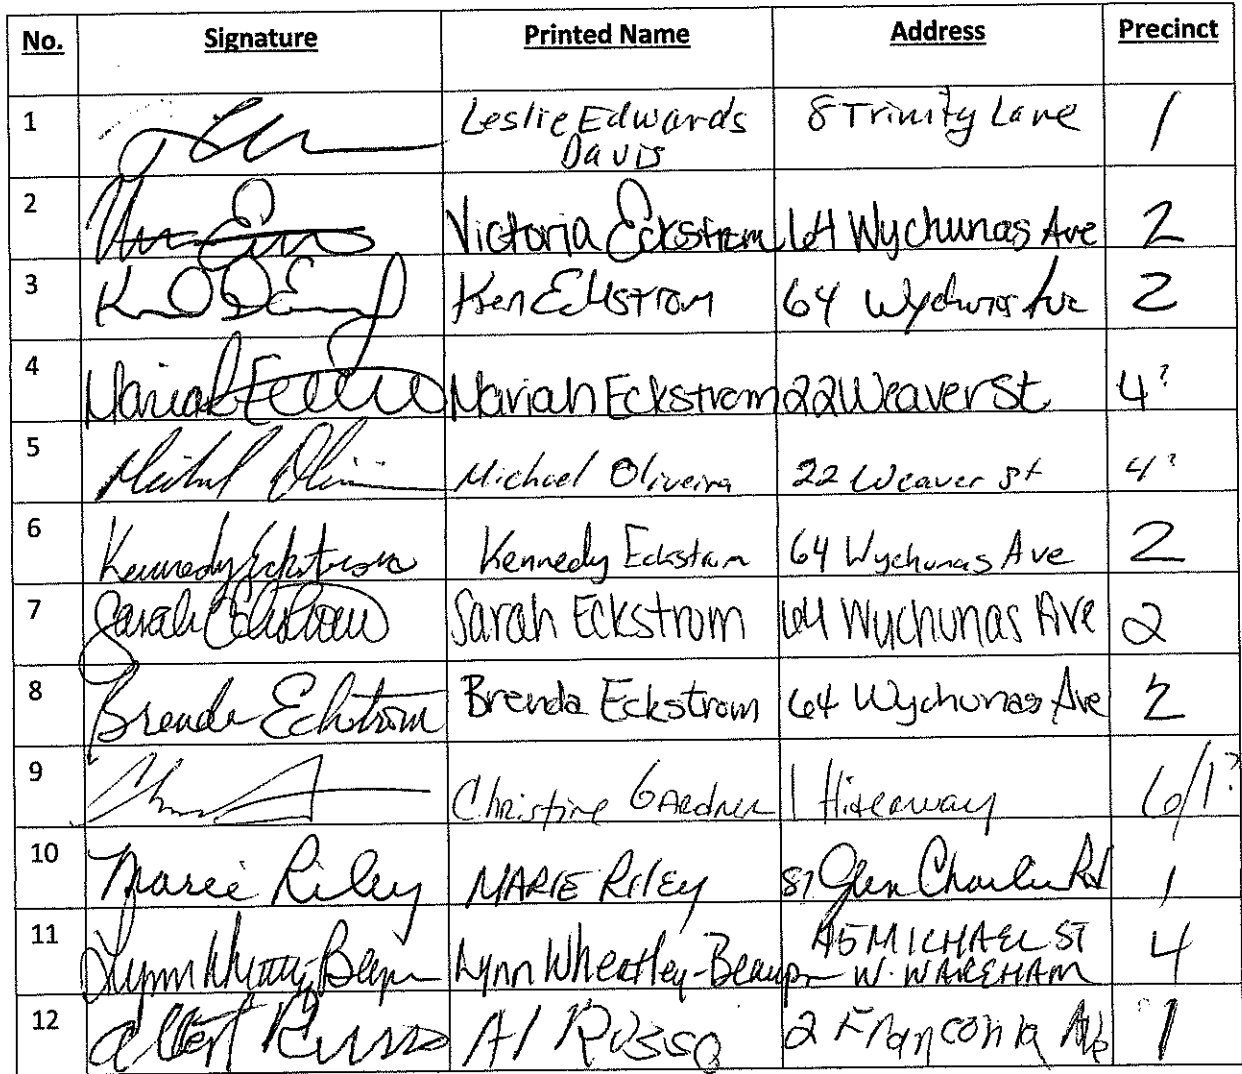 No. Signature Printed Name Address Precinct
1 Leslie Edwards 8 Trinity Lane 1
Davis
2 Victoria Eckstrom 64 Wychunas Ave 2
3 Ken Eckstrom 64 Wychunas Ave 2
4 Mariah Eckstrom 22 Weaver St 4?
5 Michael Oliveira 22 Weaver St 4?
6 Kennedy Eckstrom Kennedy Eckstrom 64 Wychunas Ave 2
7 Sarah Eckstrom Sarah Eckstrom 64 Wychunas Ave 2
8 Brenda Eckstrom Brenda Eckstrom 64 Wychunas Ave 2
9 Christine Gardner 1 Hideaway 6/1?
10 Marie Riley MARIE RILEY 87 Glen Charlie Rd 1
11 Lynn Wheatley-Beaup 45 MICHAEL ST 4
W. WAREHAM
12 Albert Russo Al Russo 2 Franconia Ave 1